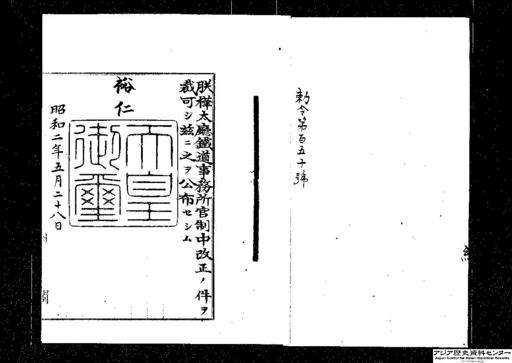 勅令第百五十號
朕樺太廳鐵道事務所官制中改正ノ件ヲ
裁可シ茲ニ之ヲ公布セシム
裕仁
天皇
御璽
昭和二年五月二十八日
アジア歴史資料センター
Japan Center for Asian Historical Records